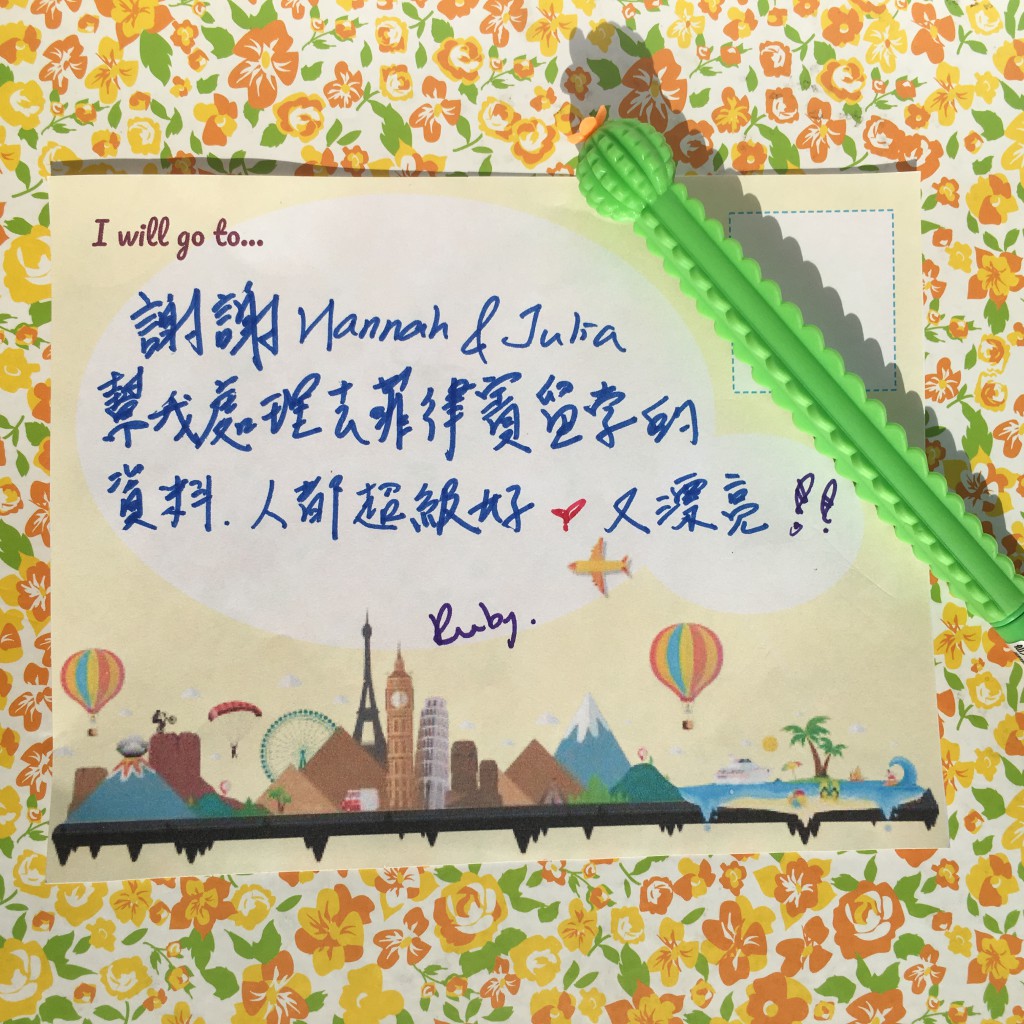 I will go to...
謝謝 Hannah & Julia
幫我處理去菲律賓留学的
資料. 人都超級好 ♥ 又漂亮 !!
Ruby.